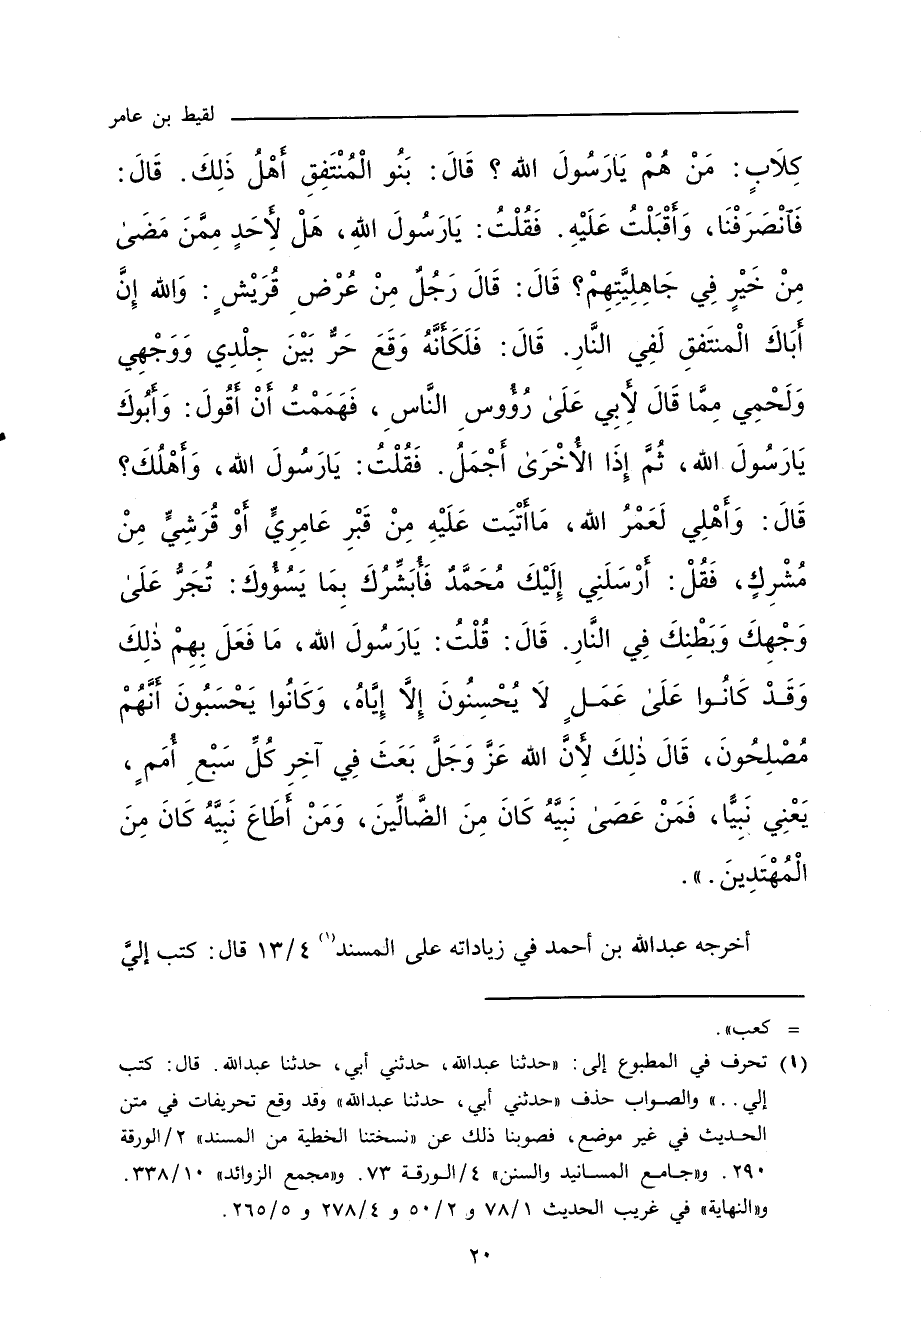 لقيط بن عامر
كِلَابٍ: مَنْ هُمْ يَارَسُولَ الله ؟ قَالَ: بَنُو الْمُنْتَفِقِ أَهْلُ ذَلِكَ. قَالَ:
فَآنْصَرَفْنَا، وَأَقْبَلْتُ عَلَيْهِ. فَقُلْتُ: يَارَسُولَ اللهِ، هَلْ لأَحَدٍ مِمَّنَ مَضَىٰ
مِنْ خَيْرٍ فِي جَاهِلِيَّتِهِمْ؟ قَالَ: قَالَ رَجُلٌ مِنْ عُرْضِ قُرَيْشٍ: وَالله إِنَّ
أَبَاكَ الْمنتَفِقِ لَفِي النَّارِ. قَالَ: فَلَكَأَنَّهُ وَقَعَ حَرٌّ بَيْنَ جِلْدِي وَوَجْهِي
وَلَحْمِي مِمَّا قَالَ لأَبِي عَلَىٰ رُؤُوسِ النَّاسِ، فَهَمَمْتُ أَنْ أَقُولَ: وَأَبُوكَ
يَارَسُولَ الله، ثُمَّ إِذَا الأُخْرَىٰ أَجْمَلُ. فَقُلْتُ: يَارَسُولَ الله، وَأَهْلُكَ؟
قَالَ: وَأَهْلِي لَعَمْرُ الله، مَاأَتَيْتَ عَلَيْهِ مِنْ قَبْرِ عَامِرِيٍّ أَوْ قُرَشِيٍّ مِنْ
مُشْرِكٍ، فَقُلْ: أَرْسَلَنِي إِلَيْكَ مُحَمَّدٌ فَأُبَشِّرُكَ بِمَا يَسُؤُوكَ: تُجَرُّ عَلَىٰ
وَجْهِكَ وَبَطْنِكَ فِي النَّارِ. قَالَ: قُلْتُ: يَارَسُولَ الله، مَا فَعَلَ بِهِمْ ذٰلِكَ
وَقَـدْ كَانُـوا عَلَىٰ عَمَـلٍ لَا يُحْسِنُونَ إِلَّا إِيَّاهُ، وَكَانُوا يَحْسَبُونَ أَنَّهُمْ
مُصْلِحُونَ، قَالَ ذٰلِكَ لأَنَّ الله عَزَّ وَجَلَّ بَعَثَ فِي آخِرِ كُلِّ سَبْعِ أُمَمٍ،
يَعْنِي نَبِيًّا، فَمَنْ عَصَىٰ نَبِيَّهُ كَانَ مِنَ الضَّالِّينَ، وَمَنْ أَطَاعَ نَبِيَّهُ كَانَ مِنَ
الْمُهْتَدِينَ.».
أخرجه عبدالله بن أحمد في زياداته على المسند(١) ١٣/٤ قال: كتب إليَّ
= كعب».
(١) تحرف في المطبوع إلى: «حدثنا عبدالله، حدثني أبي، حدثنا عبدالله. قال: كتب
إلي..» والصـواب حذف «حدثني أبي، حدثنا عبدالله» وقد وقع تحريفات في متن
الحـديث في غير موضع، فصوبنا ذلك عن «نسختنا الخطية من المسند» ٢/الورقة
٢٩٠. و«جـامع المسـانيد والسنن» ٤/الـورقـة ٧٣. و«مجمع الزوائد» ٣٣٨/١٠.
و«النهاية» في غريب الحديث ٧٨/١ و ٥٠/٢ و ٢٧٨/٤ و ٢٦٥/٥.
٢٠